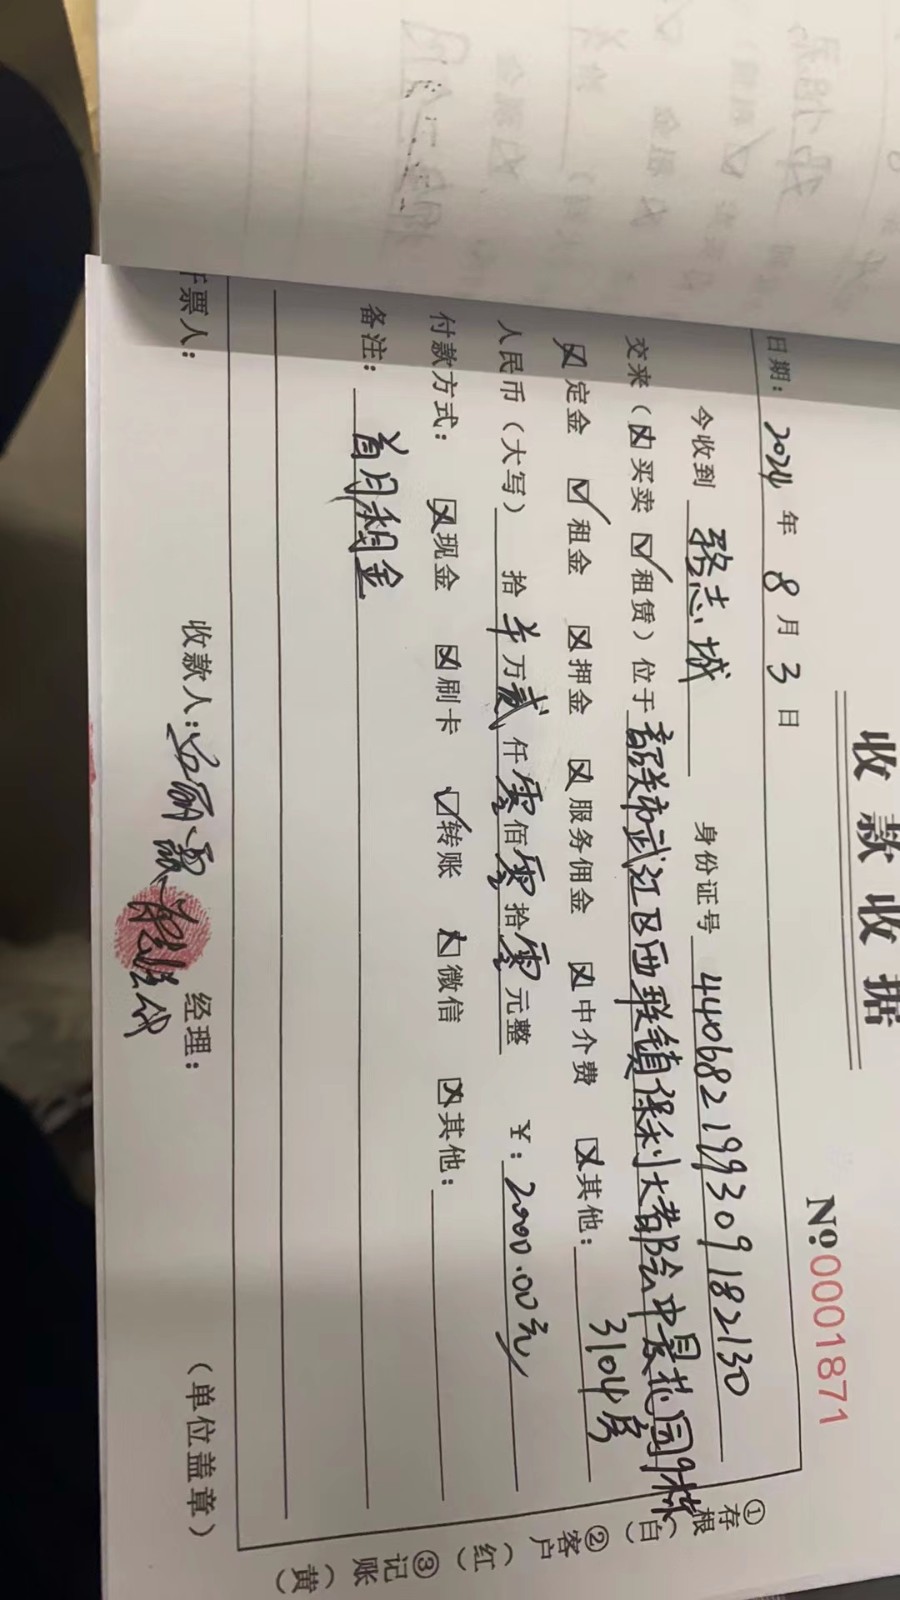 收款收据
№0001871
日期：2024年8月3日
今收到 骆志城 身份证号 440682199309182130
交来（☒买卖 ☑租赁）位于韶关市武江区西联镇保利大都会中景花园9栋
3104房
☒定金 ☑租金 ☒押金 ☒服务佣金 ☒中介费 ☒其他：
人民币（大写） 拾 羊 万 贰 仟 零 佰 零 拾 零 元整 ￥：2000.00元
付款方式： ☒现金 ☒刷卡 ☑转账 ☒微信 ☒其他：
备注： 首月租金
开票人： 收款人： 经理： （单位盖章）
①存根（白） ②客户（红） ③记账（黄）